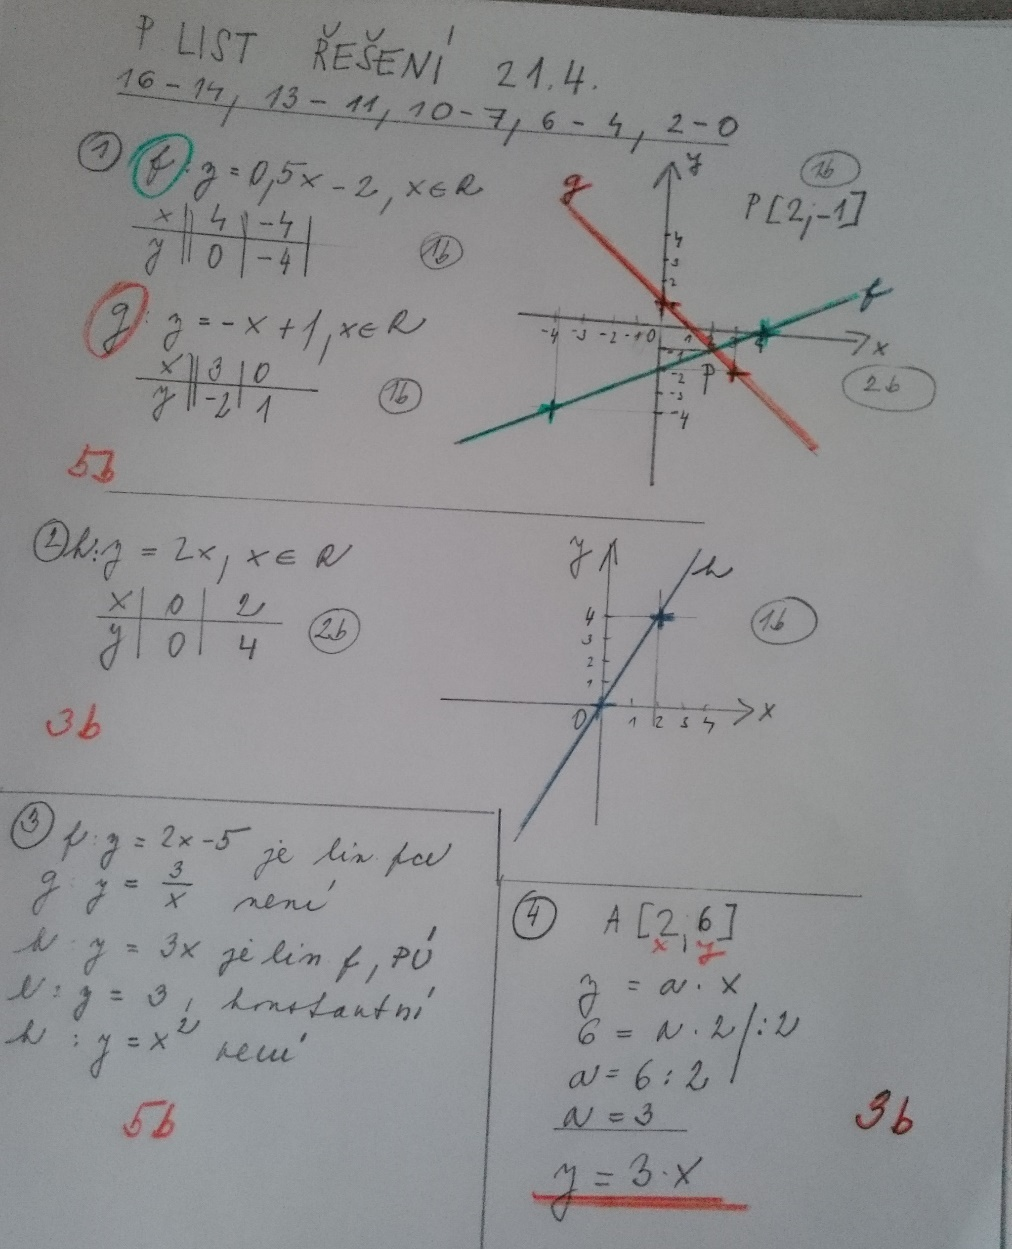 P LIST ŘEŠENÍ 21.4.
16-14, 13-11, 10-7, 6-4, 2-0
① f: y = 0,5x - 2, x ∈ R
x 4 -4
y 0 -4
1b
g: y = -x + 1, x ∈ R
x 3 0
y -2 1
1b
5b
g
y
1b
P[2;-1]
4
3
2
f
-4 -3 -2 -1 0 1 2 3 4 x
-1
-2
-3
-4
P
2b
② h: y = 2x, x ∈ R
x 0 2
y 0 4
2b
3b
y
h
4
3
2
1
0 1 2 3 4 x
1b
③ f: y = 2x - 5 je lin fce
g: y = 3/x není
h: y = 3x je lin f, PÚ
: y = 3, konstantní
: y = x² není
5b
④ A [2;6]
x y
y = a · x
6 = a · 2 /:2
a = 6 : 2
a = 3
y = 3 · x
3b